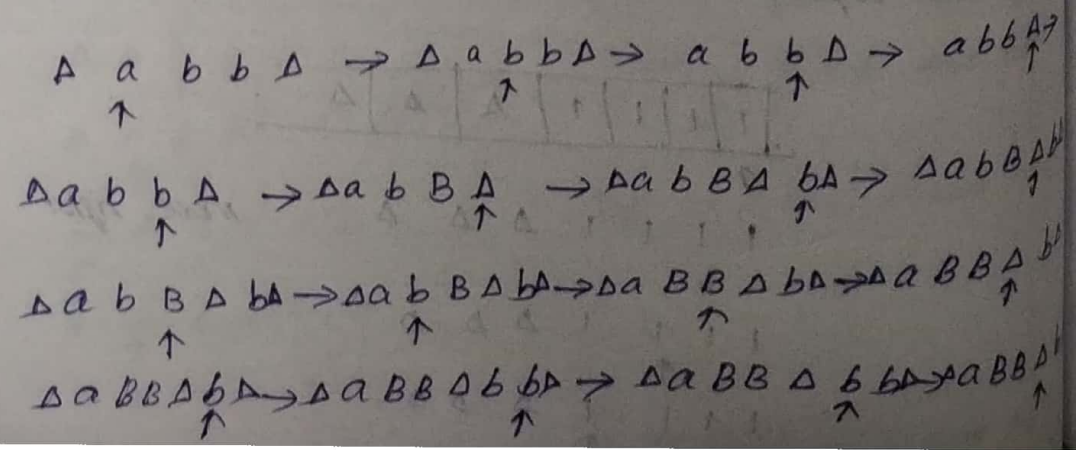 Δ a b b Δ → Δ a b b Δ → a b b Δ → a b b Δ →
↑ ↑ ↑ ↑
Δ a b b Δ → Δ a b B Δ → Δ a b B Δ b Δ → Δ a b B Δ b
↑ ↑ ↑ ↑
Δ a b B Δ b Δ → Δ a b B Δ b Δ → Δ a B B Δ b Δ → Δ a B B Δ b
↑ ↑ ↑ ↑
Δ a B B Δ b Δ → Δ a B B Δ b b Δ → Δ a B B Δ b b Δ → Δ a B B Δ
↑ ↑ ↑ ↑